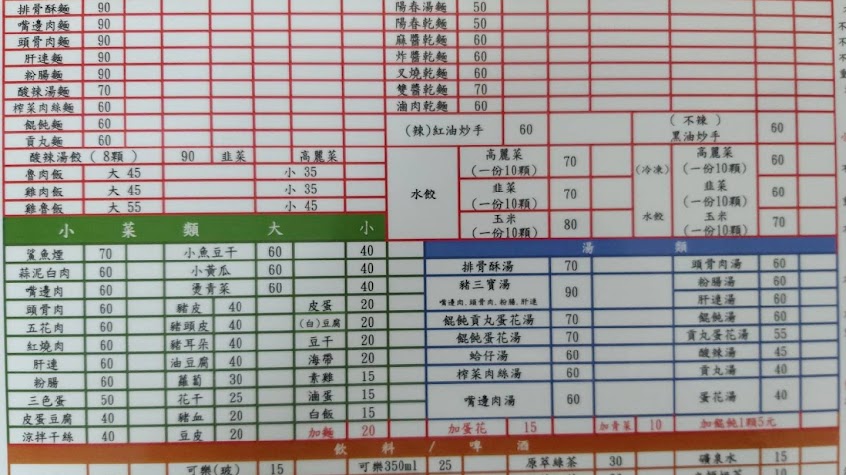 排骨酥麵 90
嘴邊肉麵 90
頭骨肉麵 90
肝連麵 90
粉腸麵 90
酸辣湯麵 70
榨菜肉絲麵 60
餛飩麵 60
貢丸麵 60
酸辣湯餃(8顆) 90 韭菜 高麗菜
魯肉飯 大 45 小 35
雞肉飯 大 45 小 35
雞魯飯 大 55 小 45
陽春湯麵 50
陽春乾麵 50
麻醬乾麵 60
炸醬乾麵 60
叉燒乾麵 60
雙醬乾麵 70
滷肉乾麵 60
(辣)紅油炒手 60
(不辣)
黑油炒手 60
水餃
高麗菜
(一份10顆) 70
韭菜
(一份10顆) 70
玉米
(一份10顆) 80
(冷凍)
水餃
高麗菜
(一份10顆) 60
韭菜
(一份10顆) 60
玉米
(一份10顆) 70
小菜類 大 小
鯊魚煙 70 小魚豆干 60 40
蒜泥白肉 60 小黃瓜 60 40
嘴邊肉 60 燙青菜 60 40
頭骨肉 60 豬皮 40 皮蛋 20
五花肉 60 豬頭皮 40 (白)豆腐 20
紅燒肉 60 豬耳朵 40 豆干 20
肝連 60 油豆腐 40 海帶 20
粉腸 60 蘿蔔 30 素雞 15
三色蛋 50 花干 25 滷蛋 15
皮蛋豆腐 40 豬血 20 白飯 15
涼拌干絲 40 豆皮 20 加麵 20
湯類
排骨酥湯 70
豬三寶湯
嘴邊肉、頭骨肉、粉腸、肝連 90
餛飩貢丸蛋花湯 70
餛飩蛋花湯 70
蛤仔湯 60
榨菜肉絲湯 60
嘴邊肉湯 60
頭骨肉湯 60
粉腸湯 60
肝連湯 60
餛飩湯 60
貢丸蛋花湯 55
酸辣湯 45
貢丸湯 40
蛋花湯 40
加蛋花 15 加青菜 10 加餛飩1顆5元
飲料/啤酒
可樂(玻) 15 可樂350ml 25 原萃綠茶 30 礦泉水 15